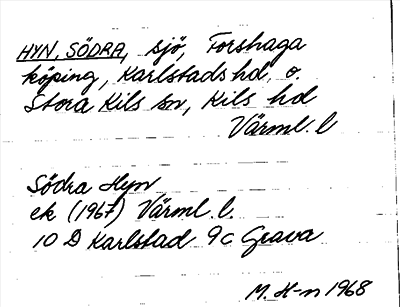 HYN, SÖDRA, sjö, Forshaga
köping, Karlstads hd, o.
Stora Kils sn, Kils hd
Värml. l
Södra Hyn
ek (1967) Värml. l.
10 D Karlstad 9c Grava
M. H-n 1968